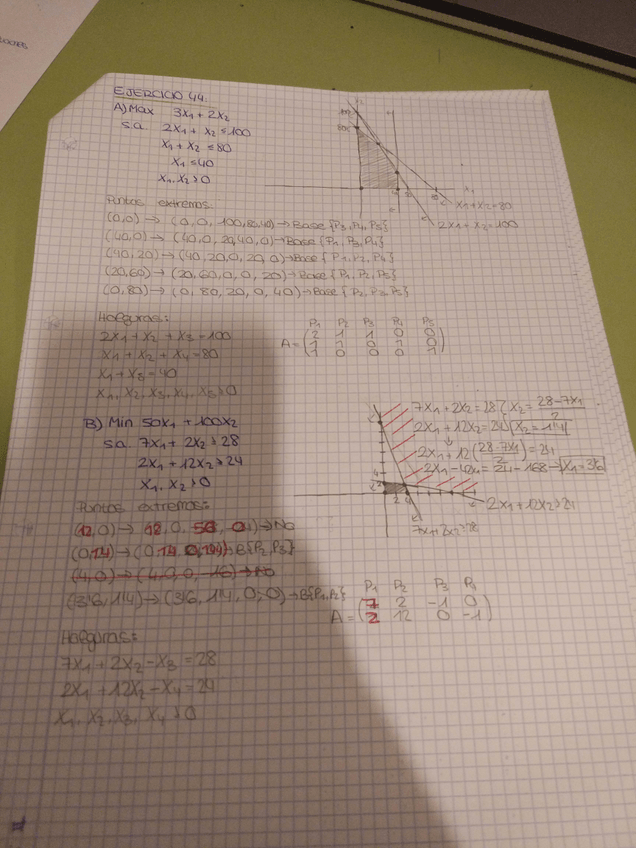 EJERCICIO 44.
A) Max 3x₁ + 2x₂
s.a. 2x₁ + x₂ ≤ 100
x₁ + x₂ ≤ 80
x₁ ≤ 40
x₁, x₂ ≥ 0
x₁ + x₂ = 80
2x₁ + x₂ = 100
Puntos extremos:
(0,0) → (0, 0, 100, 80, 40) → Base {P₃, P₄, P₅}
(40,0) → (40, 0, 20, 40, 0) → Base {P₁, P₃, P₄}
(40,20) → (40, 20, 0, 20, 0) → Base {P₁, P₂, P₄}
(20,60) → (20, 60, 0, 0, 20) → Base {P₁, P₂, P₅}
(0,80) → (0, 80, 20, 0, 40) → Base {P₂, P₃, P₅}
Holguras:
2x₁ + x₂ + x₃ = 100
x₁ + x₂ + x₄ = 80
x₁ + x₅ = 40
x₁, x₂, x₃, x₄, x₅ ≥ 0
P₁ P₂ P₃ P₄ P₅
2 1 1 0 0
A = 1 1 0 1 0
1 0 0 0 1
B) Min 50x₁ + 100x₂
s.a. 7x₁ + 2x₂ ≥ 28
2x₁ + 12x₂ ≥ 24
x₁, x₂ ≥ 0
7x₁ + 2x₂ = 28 x₂ = 28-7x₁/2
2x₁ + 12x₂ = 24 x₂ = 1'4
2x₁ + 12(28-7x₁/2) = 24
2x₁ - 42x₁ = 24 - 168 → x₁ = 3'6
2x₁ + 12x₂ ≥ 24
7x₁ + 2x₂ ≥ 28
Puntos extremos:
(12,0) → 12, 0, 56, 0) → No
(0,14) → (0, 14, 0, 144) → B{P₂, P₃}
(4,0) → (4, 0, 0, -16) → No
(3'6, 1'4) → (3'6, 1'4, 0, 0) → B{P₁, P₂}
P₁ P₂ P₃ P₄
7 2 -1 0
A = 2 12 0 -1
Holguras:
7x₁ + 2x₂ - x₃ = 28
2x₁ + 12x₂ - x₄ = 24
x₁, x₂, x₃, x₄ ≥ 0